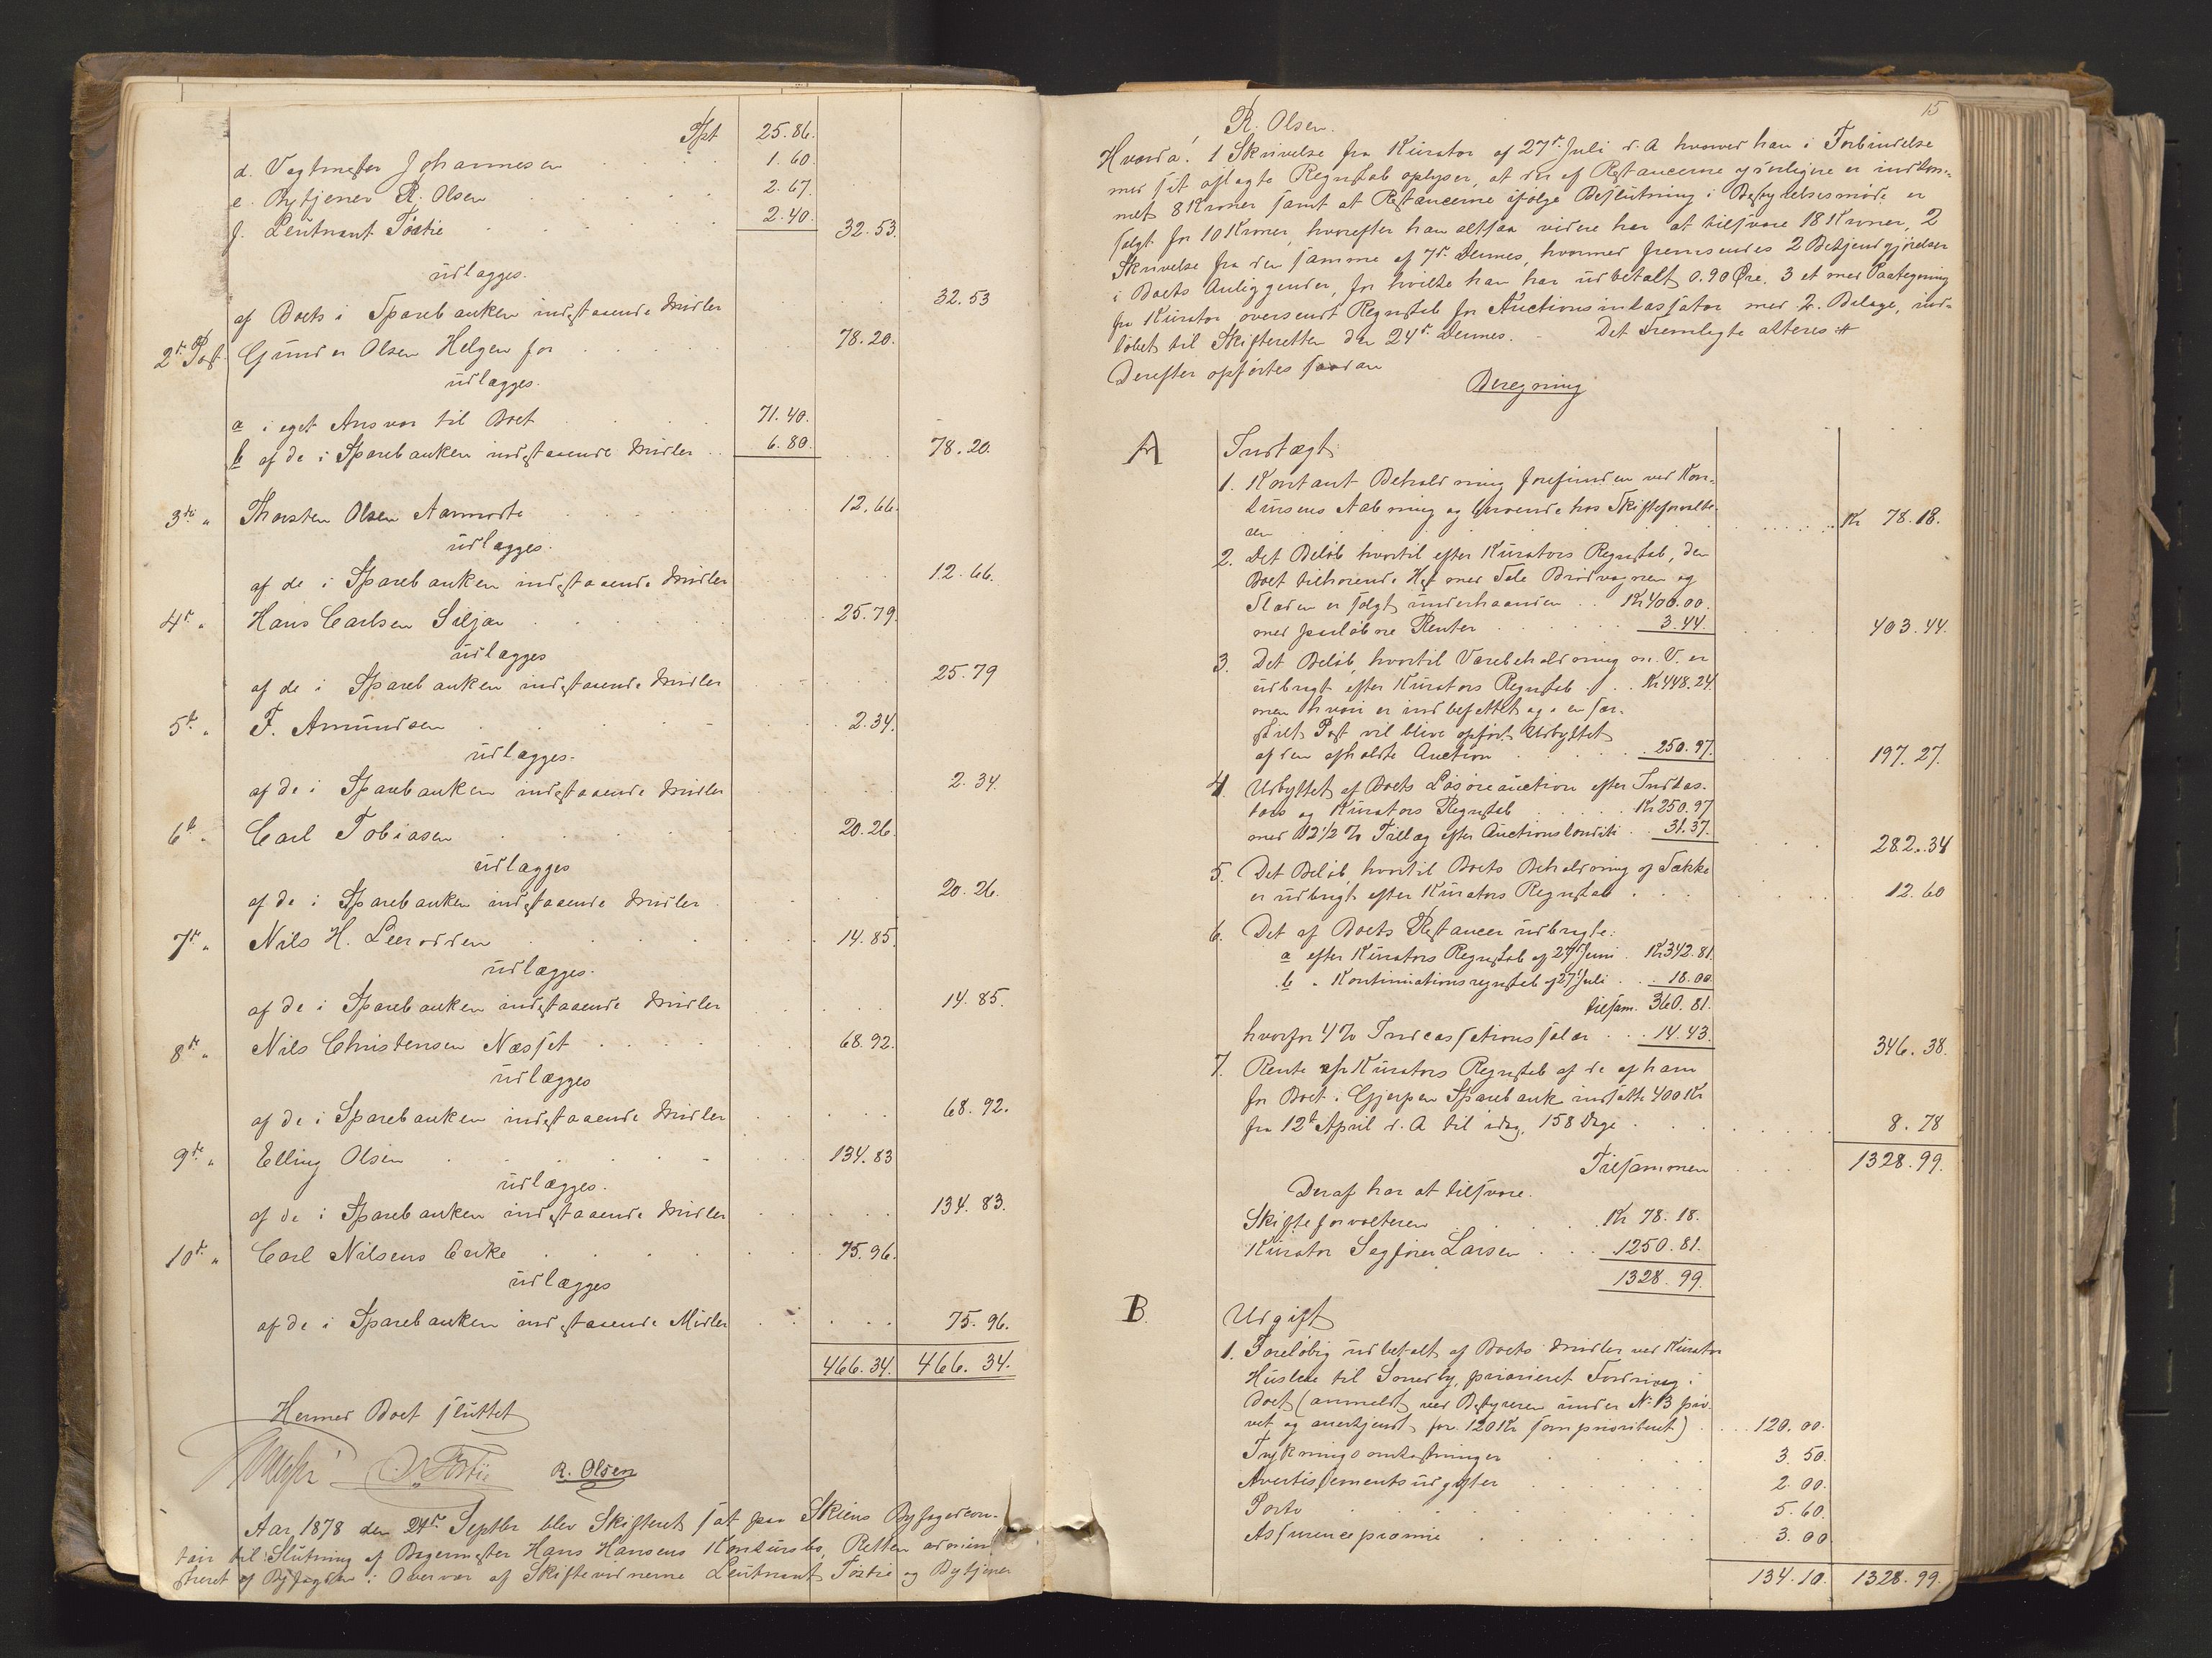 Tpt 25.86.
d. Vagtmester Johannesen 1.60.
e. Bytjener R. Olsen 2.67.
f. Leutnant Tostie 2.40. 32.53.
udlægges.
af Boets i Sparebanken indestaaende Midler 32.53
2d Post Gunder Olsen Helgen for 78.20.
udlægges.
a i eget Ansvar til Boet 71.40.
b af de i Sparebanken indestaaende Midler 6.80. 78.20.
3die " Thorsten Olsen Aarmodte 12.66.
udlægges.
af de i Sparebanken indestaaende Midler 12.66.
4de " Hans Carlsen Siljan 25.79.
udlægges
af de i Sparebanken indestaaende Midler 25.79
5te " F. Amundsen 2.34.
udlægges.
af de i Sparebanken indestaaende Midler 2.34.
6te " Carl Tobiasen 20.26.
udlægges
af de i Sparebanken indestaaende Midler 20.26.
7de " Nils H. Leerodden 14.85.
udlægges.
af de i Sparebanken indestaaende Midler 14.85.
8de " Nils Christensen Næsset 68.92.
udlægges
af de i Sparebanken indestaaende Midler 68.92.
9de " Elling Olsen 134.83
udlægges.
af de i Sparebanken indestaaende Midler 134.83.
10de " Carl Nilsens Enke 75.96.
udlægges
af de i Sparebanken indestaaende Midler 75.96.
466.34. 466.34.
Hermed Boet sluttet
Tostie R. Olsen
Aar 1878 den 24de Septbr blev Skifteret sat paa Skiens Byfogedcon-
toir til Slutning af Bagermester Hans Hansens Konkursbo, Retten admini
streret af Byfogden i Overvær af Skiftevidnerne Leutnant Tostie og Bytjener
15
R. Olsen.
Hvorda: 1 Skrivelse fra Kurator af 27de Juli d. A hvorved han i Forbindelse
med sit aflagte Regnskab oplyser, at der af Restancerne yderligere er indkom-
met 8 Kroner samt at Restancerne ifølge Beslutning i Bestyrelsesmøde er
solgt for 10 Kroner, hvorefter han altsaa videre har at tilsvare 18 Kroner, 2
Skrivelse fra den samme af 7de Dennes, hvormed fremsendes 2 Bekjendtgjørelser
i Boets Anliggender, for hvilke han har udbetalt 0.90 Øre. 3 et med Paategning
fra Kurator oversendt Regnskab for Auctionsinkassator med 2 Bilage, ind-
løbet til Skifteretten den 24de Dennes. - Det Fremlagte alteres #
Derefter opførtes saadan
Beregning
A Indtægt
1. Kontant Beholdning forefunden ved Kon-
kursens Aabning og beroende hos Skifteforvalte-
ren Kr 78.18.
2. Det Beløb hvortil efter Kurators Regnskab, den
Boet tilhørende Hest med Sele Brødvognen og
Slæden er solgt underhaanden Kr 400.00.
med paaløbne Renter 3.44. 403.44.
3. Det Beløb, hvortil Varebeholdning m. V. er
udbragt efter Kurators Regnskab Kr 448.24.
men hvori er indbefattet og i en sær-
skilt Post vil blive opført Udbyttet
af den afholdte Auction 250.97. 197.27.
4. Udbyttet af Boets Løsøreauction efter Inkas-
tors og Kurators Regnskab Kr 250.97
med 12 1/2 % Tillæg efter Auctionskonditi 31.37. 282.34
5. Det Beløb, hvortil Boets Beholdning af Sække
er udbragt efter Kurators Regnskab 12.60
6. Det af Boets Restancer udbragte:
a efter Kurators Regnskab af 27de Juni Kr 342.81.
b " Kontinuationsregnskab af 27de Juli 18.00
tilsam. 360.81.
hvorfor 4 % Indcassationssalær 14.43. 346.38.
7. Rente efter Kurators Regnskab af de af ham
for Boet i Gjerpen Sparebank indsatte 400 Kr
fra 12te April d. A til idag, 158 Dage 8.78
Tilsammen 1328.99.
Deraf har at tilsvare.
Skifteforvalteren Kr 78.18.
Kurator Sagfører Larsen 1250.81.
1328.99.
B. Udgift
1. Foreløbig udbetalt af Boets Midler ved Kurator
Husleie til Sondby, prioriteret Fordring i
Boet (anmeldt ved Bestyreren under No. 13 prø-
vet og anerkjendt for 120 Kr som prioriteret) 120.00.
Trykningsomkostninger 3.50.
Avertissementsudgifter 2.00.
Porto 5.60.
Assurancepræmie 3.00
134.10. 1328.99.